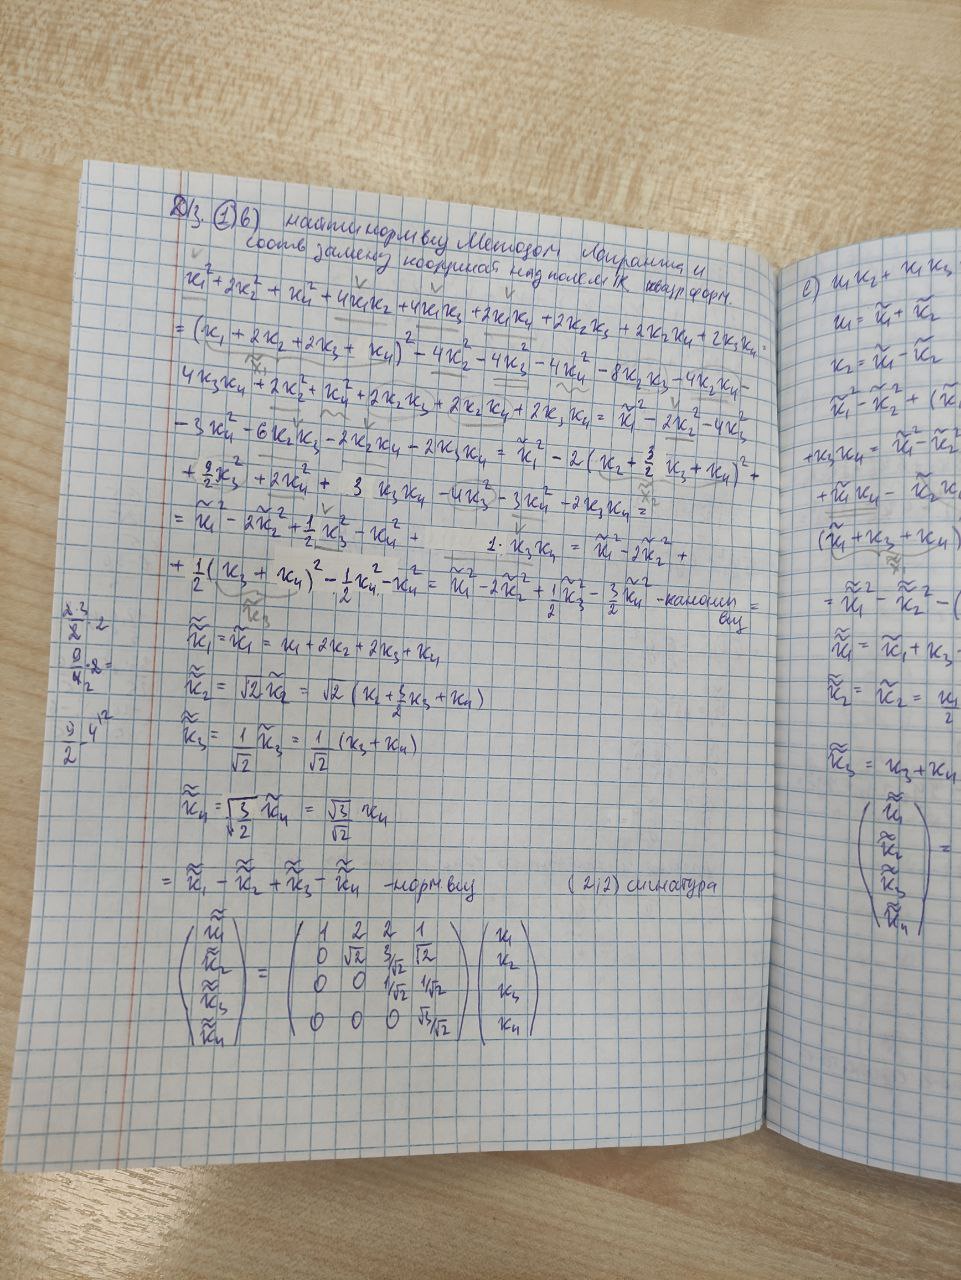 Д/з. ① в) найти норм вид Методом Лагранжа и
соотв замену координат над полем ℝ квадр форм.
x₁² + 2x₂² + x₄² + 4x₁x₂ + 4x₁x₃ + 2x₁x₄ + 2x₂x₃ + 2x₂x₄ + 2x₃x₄ =
= (x₁ + 2x₂ + 2x₃ + x₄)² - 4x₂² - 4x₃² - 4x₄² - 8x₂x₃ - 4x₂x₄ -
x̃₁
4x₃x₄ + 2x₂² + x₄² + 2x₂x₃ + 2x₂x₄ + 2x₃x₄ = x̃₁² - 2x₂² - 4x₃²
- 3x₄² - 6x₂x₃ - 2x₂x₄ - 2x₃x₄ = x̃₁² - 2(x₂ + 3/2 x₃ + x₄)² +
x̃₂
+ 9/2 x₃² + 2x₄² + 3 x₃x₄ - 4x₃² - 3x₄² - 2x₃x₄ =
= x̃₁² - 2x̃₂² + 1/2 x₃² - x₄² + 1·x₃x₄ = x̃₁² - 2x̃₂² +
+ 1/2 (x₃ + x₄)² - 1/2 x₄² - x₄² = x̃₁² - 2x̃₂² + 1/2 x̃₃² - 3/2 x̃₄² - канонич вид =
x̃₃
23/2 · 2
9/4₂ · 2 =
9/2 - 4
x̃̃₁ = x̃₁ = x₁ + 2x₂ + 2x₃ + x₄
x̃̃₂ = √2 x̃₂ = √2 (x₂ + 3/2 x₃ + x₄)
x̃̃₃ = 1/√2 x̃₃ = 1/√2 (x₃ + x₄)
x̃̃₄ = √(3/2) x̃₄ = √3/√2 x₄
= x̃̃₁ - x̃̃₂ + x̃̃₃ - x̃̃₄ - норм вид (2,2) сигнатура
(x̃̃₁ x̃̃₂ x̃̃₃ x̃̃₄) =
1 2 2 1
0 √2 3/√2 √2
0 0 1/√2 1/√2
0 0 0 √3/√2
(x₁ x₂ x₃ x₄)
е) x₁x₂ + x₁x₃
x₁ = x̃₁ + x̃₂
x₂ = x̃₁ - x̃₂
x̃₁² - x̃₂² + (x̃
+ x₃x₄ = x̃₁² - x̃₂²
+ x̃₁x₄ - x̃₂x
(x̃₁ + x₃ + x₄)
= x̃̃₁² - x̃₂² - (
x̃̃₁ = x̃₁ + x₃
x̃̃₂ = x̃₂ = x₁/2
x̃̃₃ = x₃ + x₄
(x̃̃₁ x̃̃₂ x̃̃₃ x̃̃₄) =